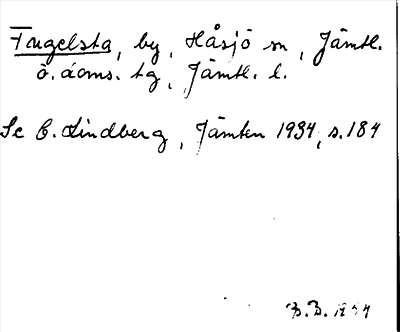 Fugelsta, by, Håsjö sn, Jämtl.
ö. doms. tg, Jämtl. l.
Se C. Lindberg, Jämten 1934, s. 184
B.B. 19